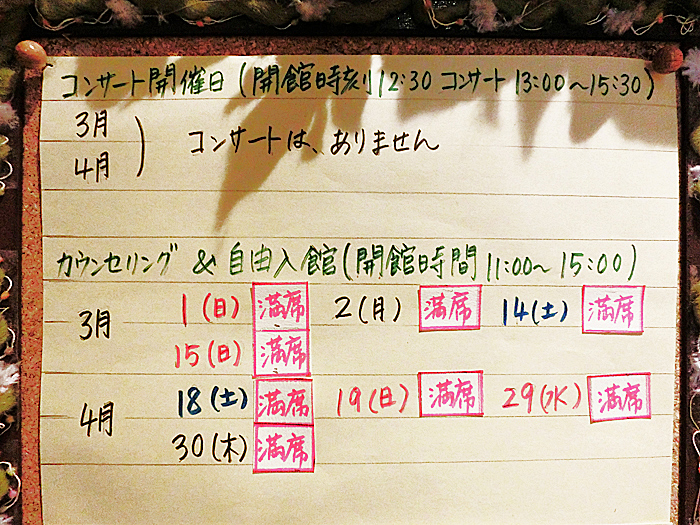 コンサート開催日(開館時刻12:30 コンサート13:00〜15:30)
3月
4月 ) コンサートは、ありません
カウンセリング & 自由入館(開館時間11:00〜15:00)
3月 1(日) 満席 2(月) 満席 14(土) 満席
15(日) 満席
4月 18(土) 満席 19(日) 満席 29(水) 満席
30(木) 満席